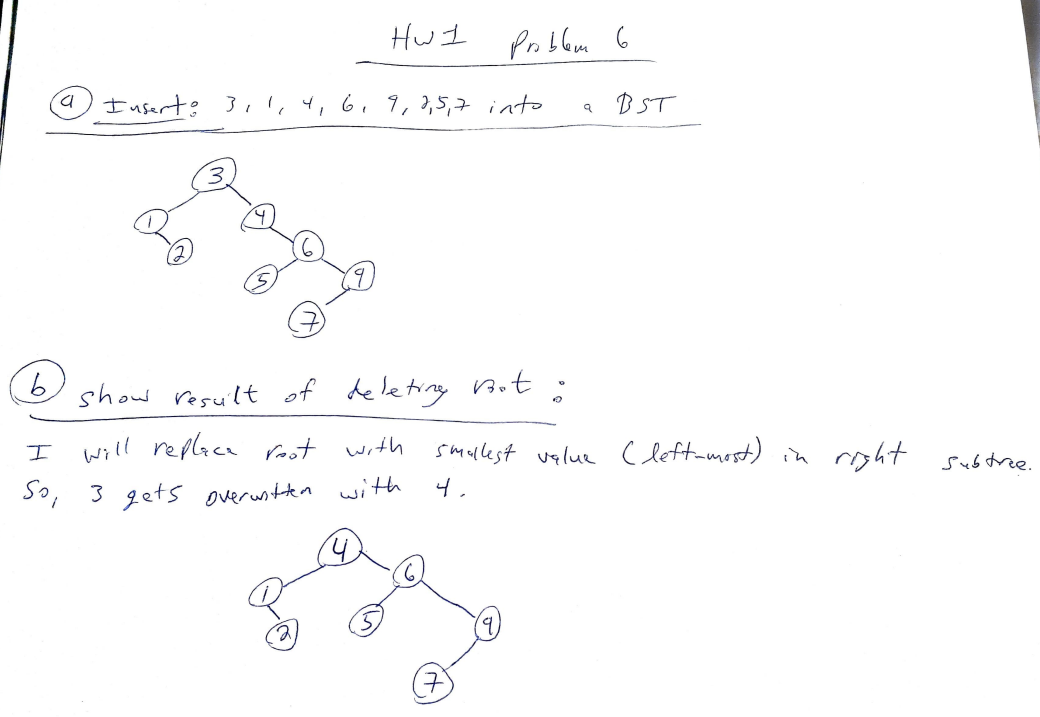 HW1 Problem 6
a Insert: 3, 1, 4, 6, 9, 2, 5, 7 into a BST
3
1 4
2 6
5 9
7
b show result of deleting root:
I will replace root with smallest value (left-most) in right subtree.
So, 3 gets overwritten with 4.
4
6
1
2 5 9
7